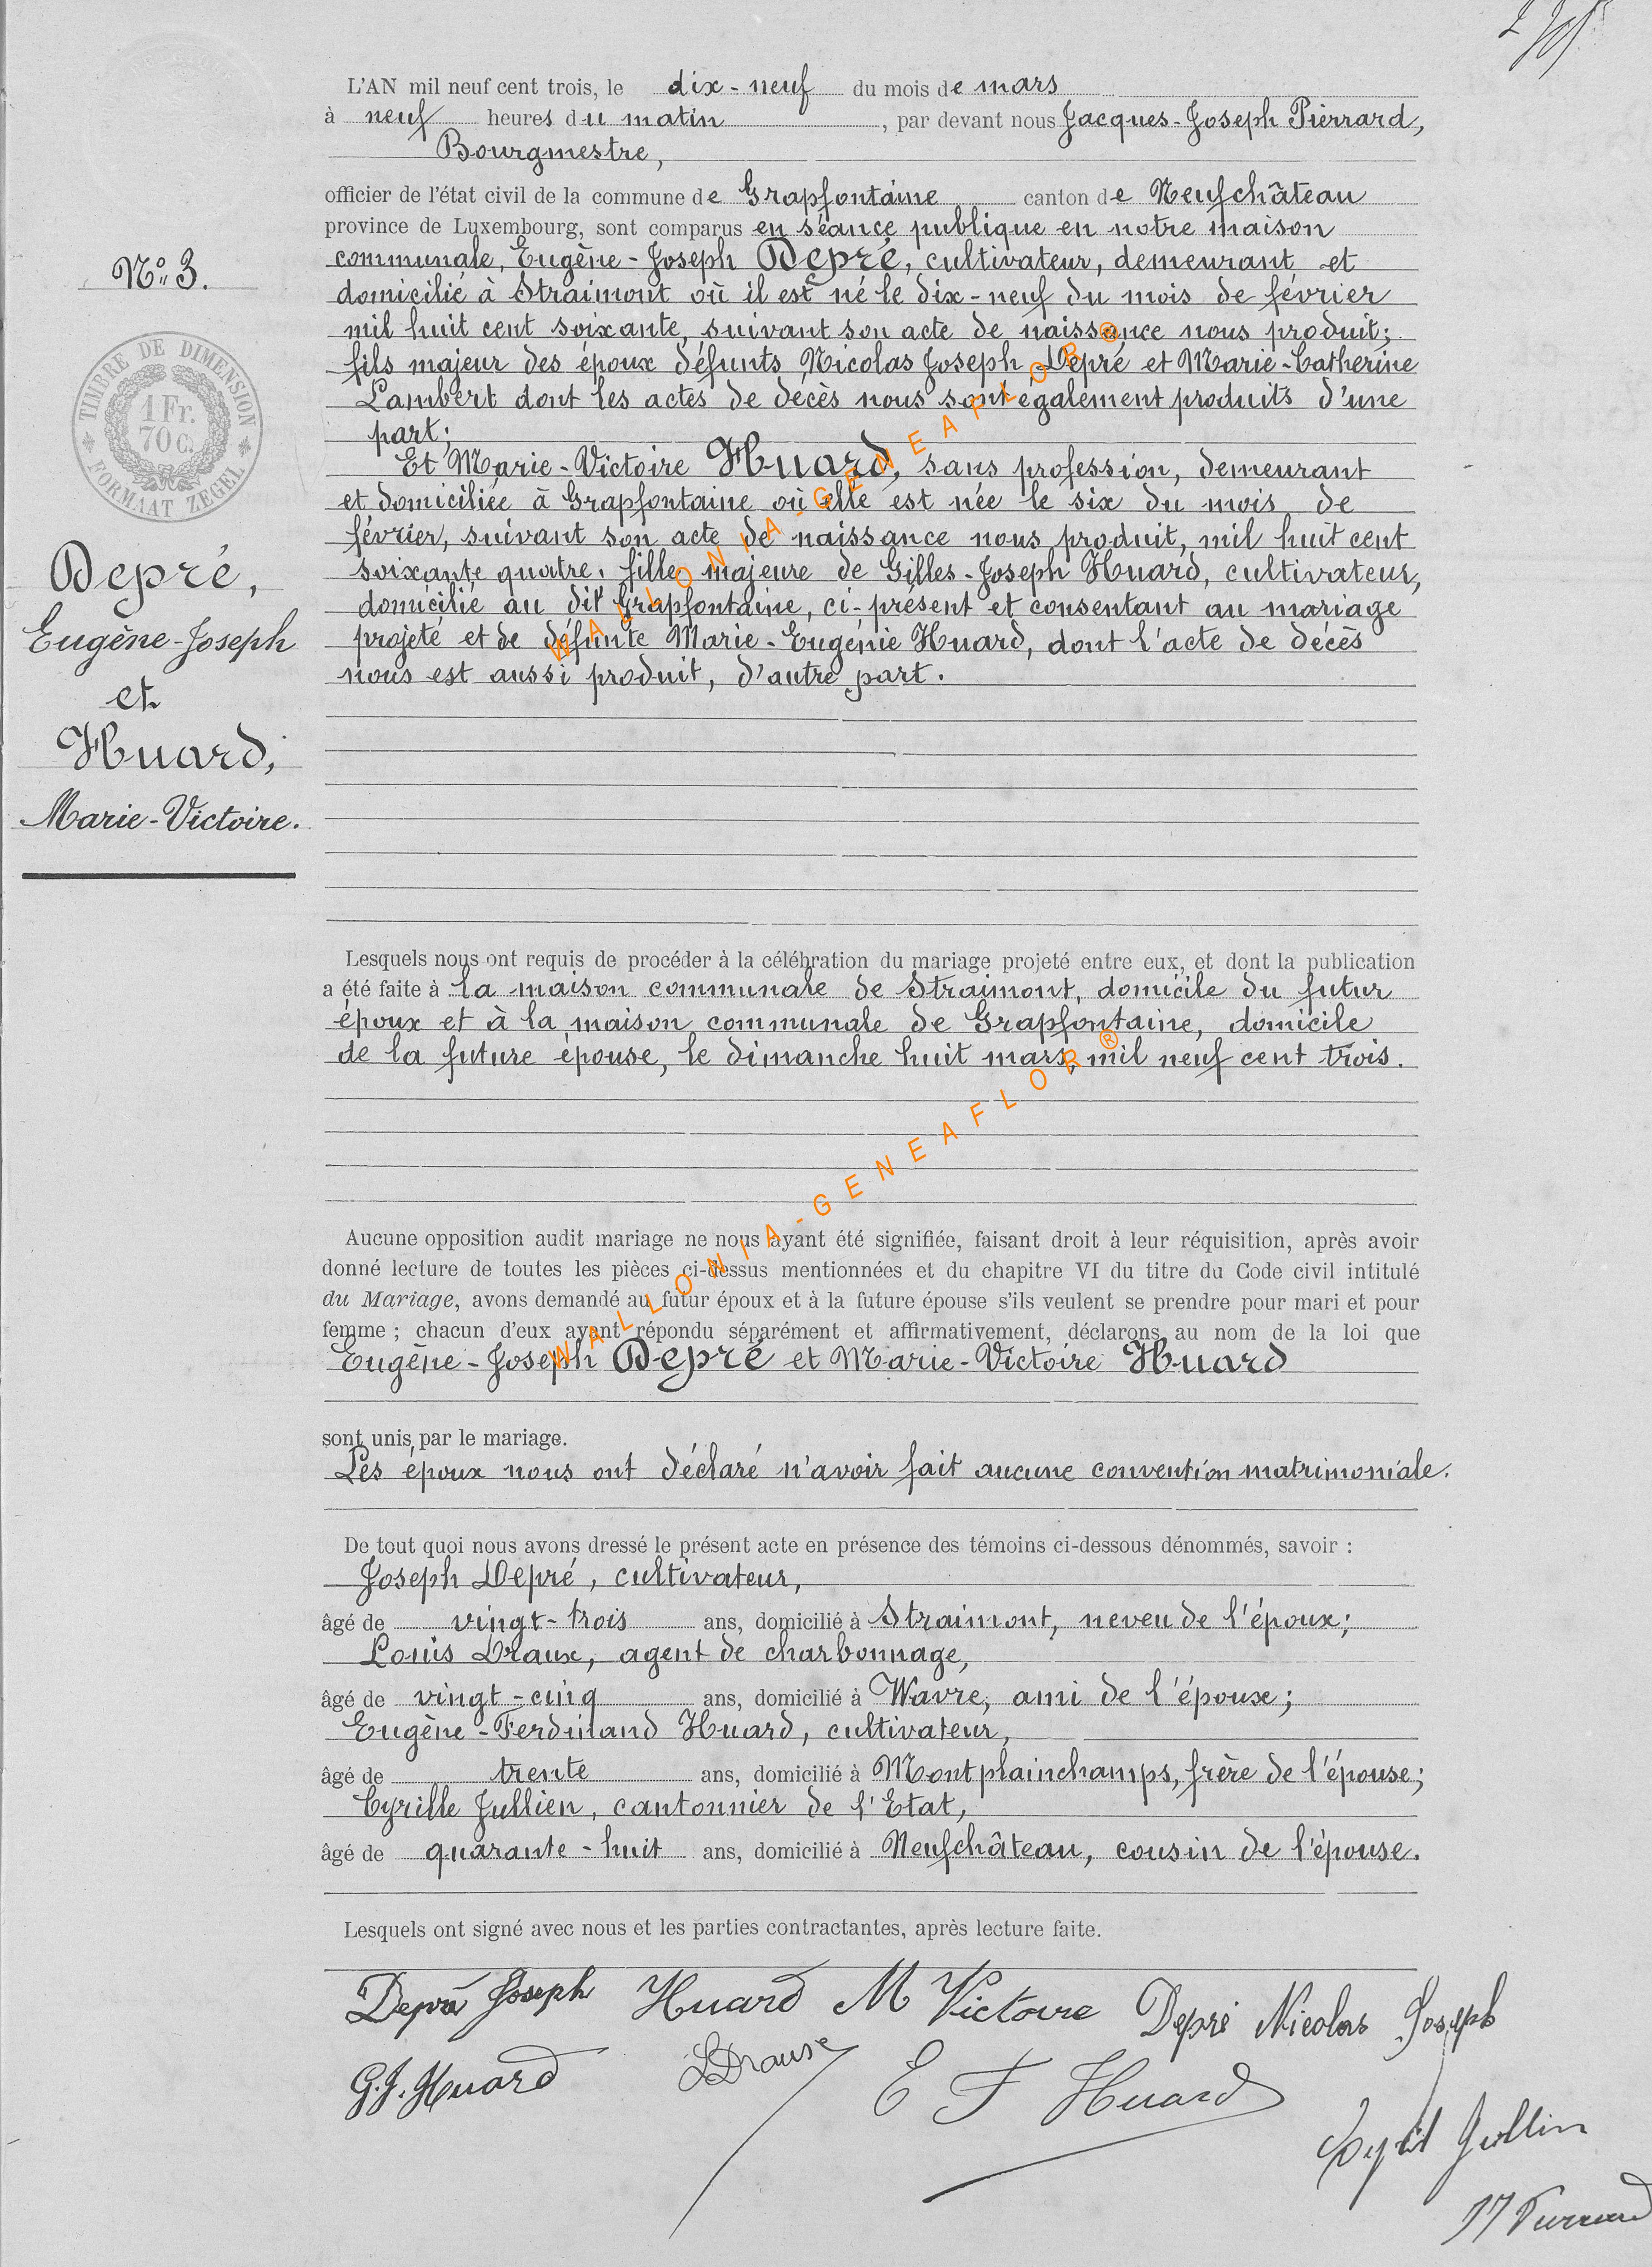 L'AN mil neuf cent trois, le dix-neuf du mois de mars
à neuf heures du matin, par devant nous Jacques-Joseph Pierrard,
Bourgmestre,
officier de l'état civil de la commune de Grapfontaine canton de Neufchâteau
province de Luxembourg, sont comparus en séance publique en notre maison
communale, Eugène-Joseph Depré, cultivateur, demeurant et
domicilié à Straimont où il est né le dix-neuf du mois de février
mil huit cent soixante, suivant son acte de naissance nous produit;
fils majeur des époux défunts Nicolas Joseph Depré et Marie-Catherine
Lambert dont les actes de décès nous sont également produits d'une
part;
Et Marie-Victoire Huard, sans profession, demeurant
et domiciliée à Grapfontaine où elle est née le six du mois de
février, suivant son acte de naissance nous produit, mil huit cent
soixante quatre, fille majeure de Gilles-Joseph Huard, cultivateur,
domicilié au dit Grapfontaine, ci-présent et consentant au mariage
projeté et de défunte Marie-Eugénie Huard, dont l'acte de décès
nous est aussi produit, d'autre part.
N° 3.
TIMBRE DE DIMENSION
1 Fr.
70 C.
FORMAAT ZEGEL
Depré,
Eugène-Joseph
et
Huard,
Marie-Victoire.
WALLONIA-GENEAFLOR®
Lesquels nous ont requis de procéder à la célébration du mariage projeté entre eux, et dont la publication
a été faite à la maison communale de Straimont, domicile du futur
époux et à la maison communale de Grapfontaine, domicile
de la future épouse, le dimanche huit mars, mil neuf cent trois.
WALLONIA-GENEAFLOR®
Aucune opposition audit mariage ne nous ayant été signifiée, faisant droit à leur réquisition, après avoir
donné lecture de toutes les pièces ci-dessus mentionnées et du chapitre VI du titre du Code civil intitulé
du Mariage, avons demandé au futur époux et à la future épouse s'ils veulent se prendre pour mari et pour
femme ; chacun d'eux ayant répondu séparément et affirmativement, déclarons au nom de la loi que
Eugène-Joseph Depré et Marie-Victoire Huard
sont unis par le mariage.
Les époux nous ont déclaré n'avoir fait aucune convention matrimoniale.
De tout quoi nous avons dressé le présent acte en présence des témoins ci-dessous dénommés, savoir :
Joseph Depré, cultivateur,
âgé de vingt-trois ans, domicilié à Straimont, neveu de l'époux;
Louis Draux, agent de charbonnage,
âgé de vingt-cinq ans, domicilié à Wavre, ami de l'épouse;
Eugène-Ferdinand Huard, cultivateur,
âgé de trente ans, domicilié à Montplainchamps, frère de l'épouse;
Cyrille Jullien, cantonnier de l'Etat,
âgé de quarante-huit ans, domicilié à Neufchâteau, cousin de l'épouse.
Lesquels ont signé avec nous et les parties contractantes, après lecture faite.
Depré Joseph Huard M Victoire Depré Nicolas Joseph
G.J. Huard LDraux E F Huard
Jullin